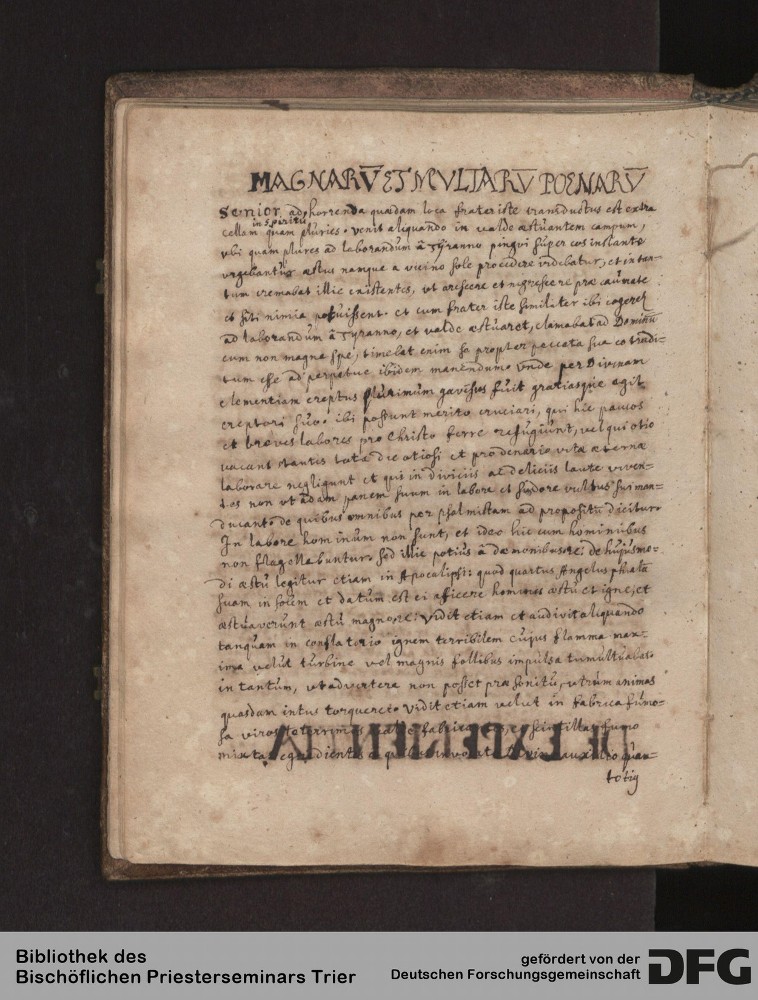 MAGNARV̄ ET MVLTARV̄ POENARV̄
Senior ad horrenda quædam loca frater iste transductus est extra
in spiritu
cellam quam plures. venit aliquando in valde æstuantem campum,
vbi quam plures ad laborandum â Tyranno pingvi super eos instante
vrgebantur æstus namque a vicino sole procedere videbatur, et in tan-
tum cremabat illic existentes, vt arescere et nigrescere præ caumate
et siti nimia potuissent. et cum frater iste similiter ibi cogeret
ad laborandum â Tyranno, et valde æstuaret, clamabat ad Dominū
cum non magna spe, timebat enim se propter peccata sua eo tradi-
tum esse ad perpetue ibidem manendum. vnde per Divinam
clementiam ereptus plurimum gavisus fuit gratiasque egit
ereptori suo. ibi possunt merito cruciari, qui hic paucos
et breves labores pro Christo ferre refugiunt, vel qui otio
vacant stantes tota die otiosi et pro denario vitæ æternæ
laborare negligunt et qui in divitiis ac deliciis laute viven-
tes non vt adam panem suum in labore et sudore vultus sui man-
ducant. de quibus omnibus per psalmistam ad propositū dicitur.
In labore hominum non sunt, et ideo hic cum hominibus
non flagellabuntur. sed illic potius â dæmonibus &c: de hujusmo-
di æstu legitur etiam in Apocalipsi: quod quartus Angelus phialā
suam in solem et datum est ei afficere homines æstu et igne, et
æstuaverunt æstu magno &c: Vidit etiam et audivit aliquando
tanquam in conflatorio ignem terribilem cujus flamma max-
ima velut turbine vel magnis follibus impulsa tumultuabat
in tantum, vt advertere non posset præ sonitu, vtrum animas
quasdam intus torqueret. vidit etiam velut in fabrica fumo-
sa viros teterrimos fabri et scintillas fumo
mixtas egredientes a
totig
DE EXPERIENTIA
Bibliothek des
Bischöflichen Priesterseminars Trier
gefördert von der
Deutschen Forschungsgemeinschaft
DFG